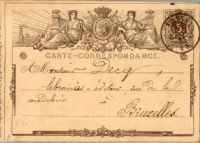 CARTE-CORRESPONDANCE.
A Monsieur Decq,
libraire - éditeur, rue de la
madeleine
Bruxelles.
5